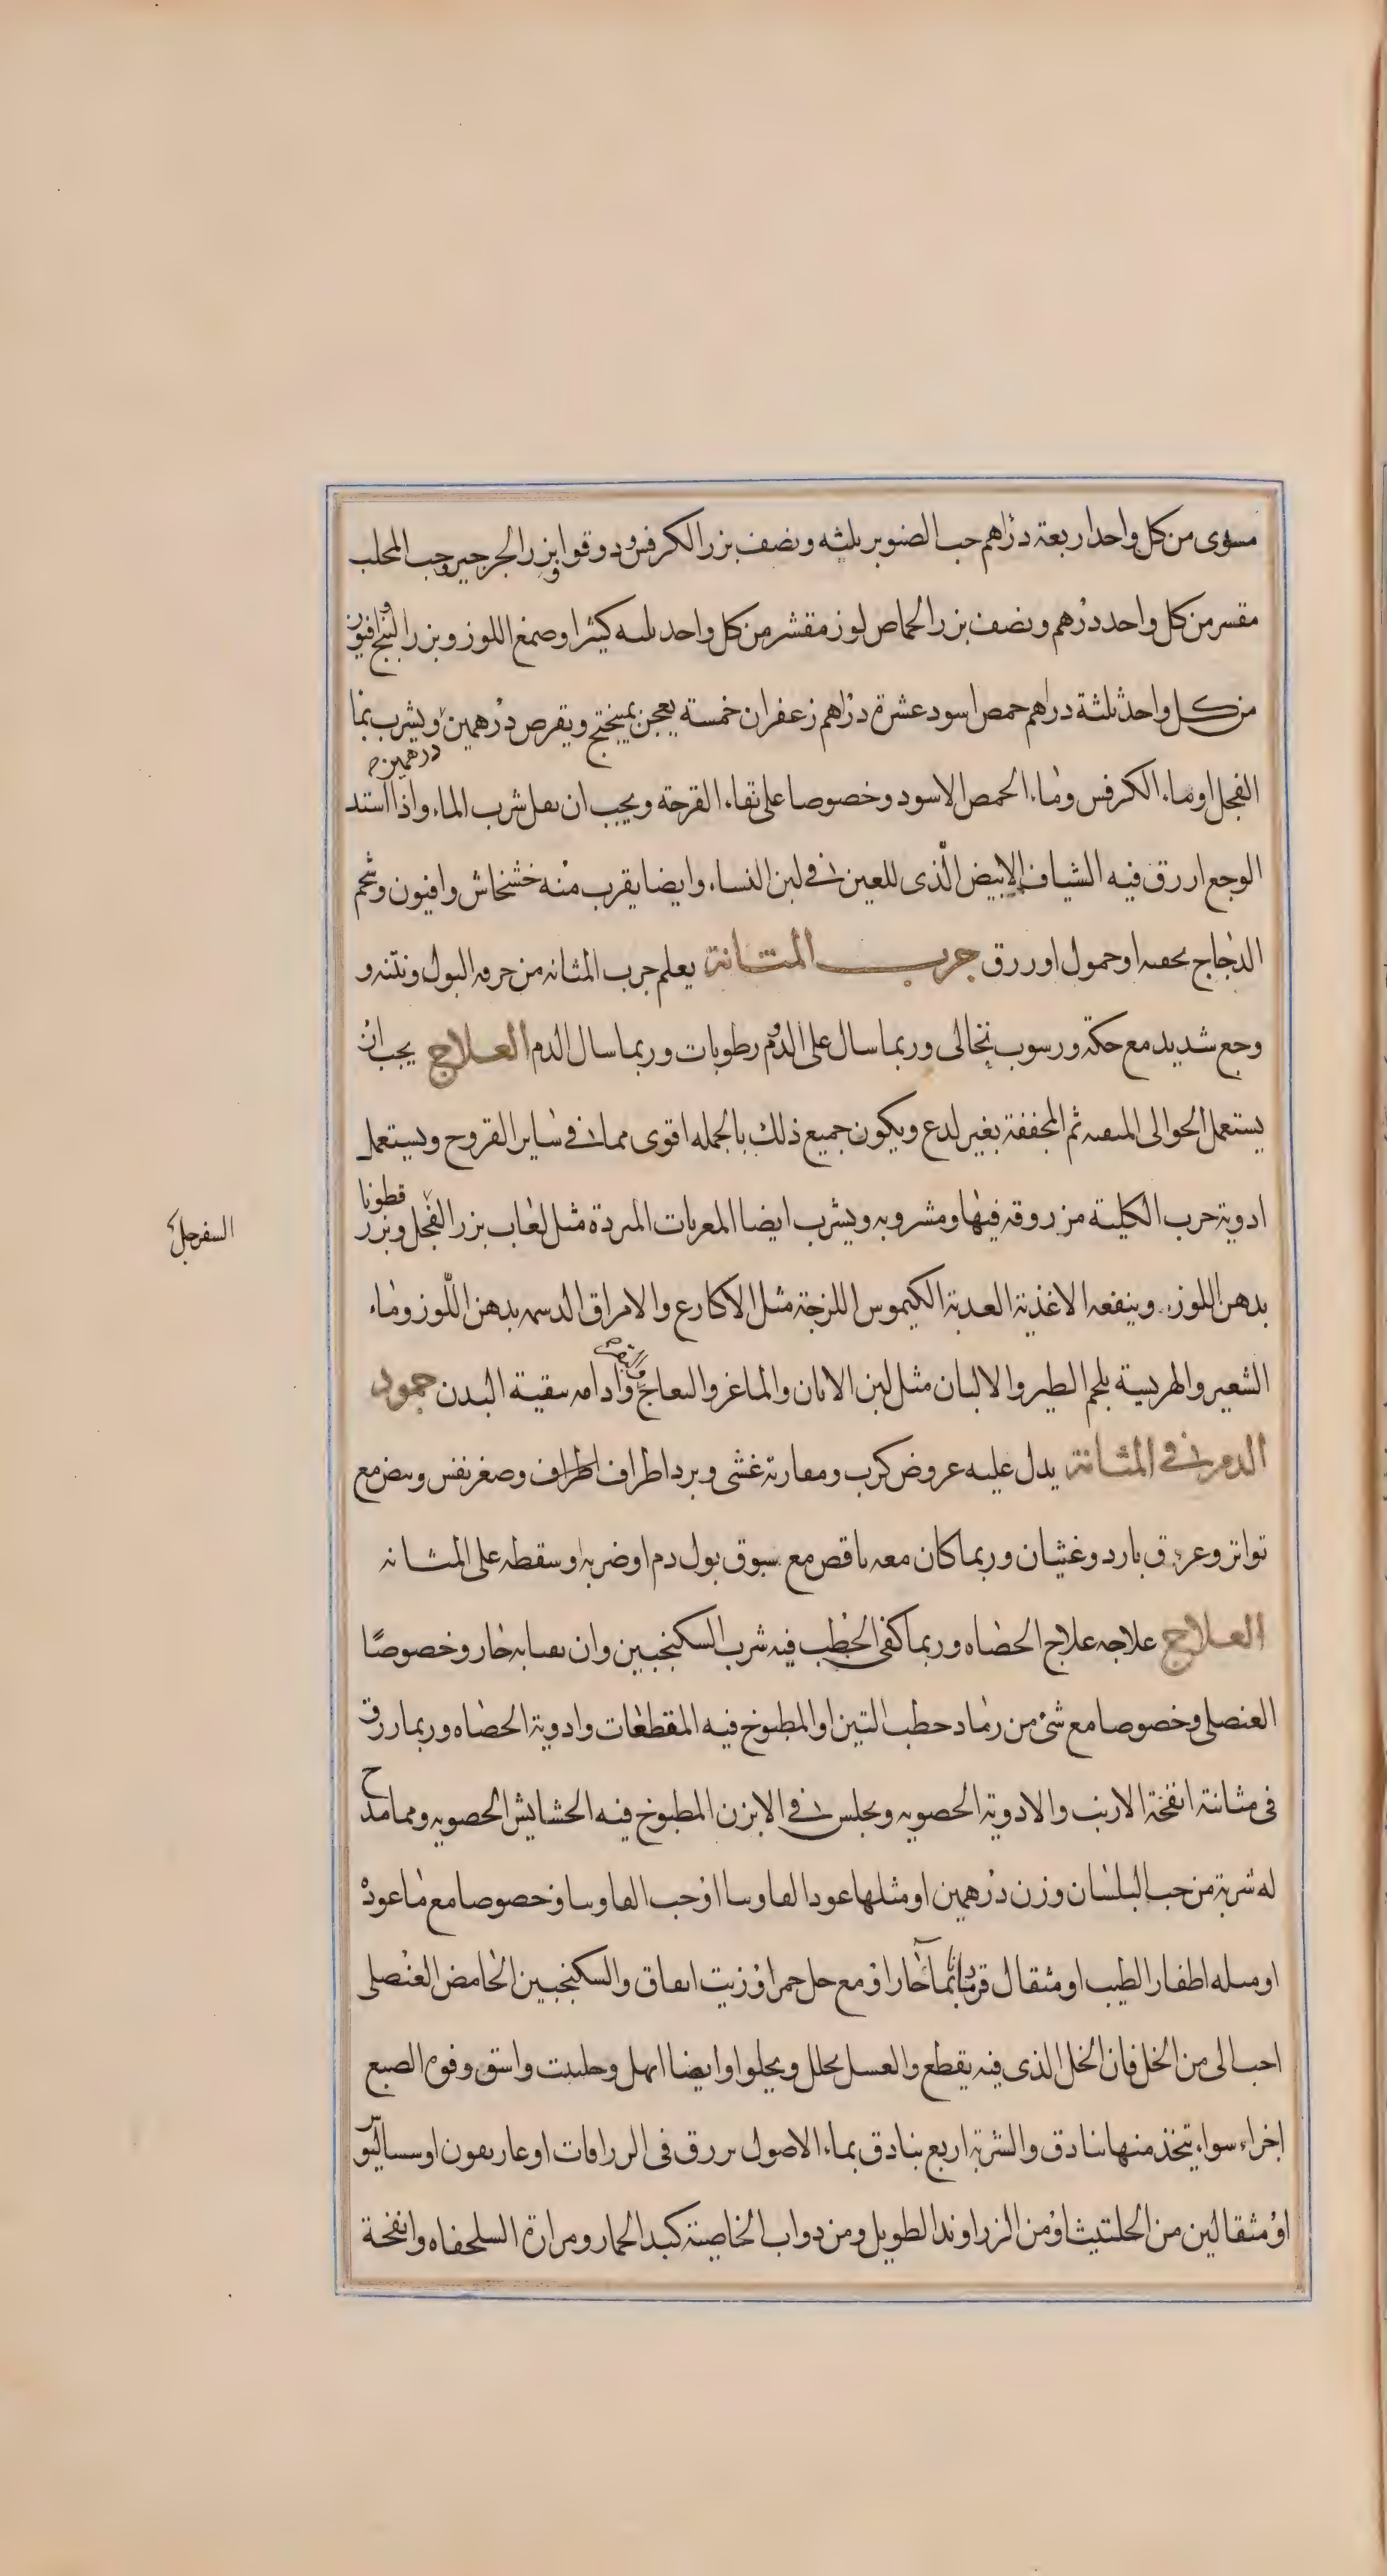 مسوى من كل واحد اربعة دراهم حب الصنوبر ثلثه ونصف بزر الكرفس ودوقوا وبزر الجرجير وحب المحلب
مقسر من كل واحد درهم ونصف بزر الحماض لوز مقشر من كل واحد ثلثه كثيرا وصمغ اللوز وبزر البنج وافيون
من كل واحد ثلثة دراهم حمص اسود عشرة دراهم زعفران خمسة يعجن بميبختج ويقرص درهمين ويشرب بما
درهمين
الفجل او ماء الكرفس وماء الحمص الاسود وخصوصا على نقاء القرحة ويجب ان يقل شرب الماء واذا استد
الوجع ازرق فيه الشياف الابيض الّذى للعين فى لبن النساء وايضا يقرب منه خشخاش وافيون وشحم
الدجاج بحقنه او حمول او زرق جرب المثانة يعلم جرب المثانه من حرقه البول ونتنه و
وجع شديد مع حكة ورسوب نخالى وربما سال على الدوم رطوبات وربما سال الدم العلاج يجب ان
يستعمل الحوالى المنقيه ثم المجففة بغير لدع ويكون جميع ذلك بالجمله اقوى مما فى ساير القروح ويستعمل
ادوية جرب الكلية مزروقه فيها ومشروبه ويشرب ايضا المغريات المبردة مثل لعاب بزر الفجل وبزر قطونا
السفرجل
بدهن اللوز وينفعه الاغذية العذبة الكيموس اللزجة مثل الاكارع والامراق الدسمه بدهن اللّوز وماء
الشعير والهريسة بلحم الطير والالبان مثل لبن الاتان والماعز والنعاج وادامه تنقية البدن جمود
الدم فى المثانة يدل عليه عروض كرب ومقاربة غشى وبرد اطراف اطراف وصغر نفس ونبض مع
تواتر وعرق بارد وغثيان وربما كان معه ناقض مع سبوق بول دم او ضربه او سقطه على المثانه
العلاج علاجه علاج الحصاه وربما كفى الخطب فيه شرب السكنجبين وان تقيا به حار وخصوصًا
العنصلى وخصوصا مع شئ من رماد حطب التين او المطبوخ فيه المقطعات وادوية الحصاه وربما زرق
فى مثانته انفخة الارنب والادوية الحصويه ويجلس فى الابزن المطبوخ فيه الحشايش الحصويه ومما مدح
له شربة من حب البلسان وزن درهمين او مثلها عود الفاوينا او حب الفاوينا وخصوصا مع ماء عوده
او مثله اظفار الطيب او مثقال قردمانا بماء حار او مع خل خمر او زيت انفاق والسكنجبين الحامض العنصلى
احب الى من الخل فان الخل الذى فيه يقطع والعسل يحلل ويجلوا وايضا ابهل وحلتيت واشق وفوه الصبغ
اجزاء سواء يتخذ منها بنادق والشربة اربع بنادق بماء الاصول يزرق فى الزراقات او غاريقون او سساليوس
او مثقالين من الحلتيت او من الزراوند الطويل ومن دواب الخاصية كبد الحمار ومرارة السلحفاه وانفخة